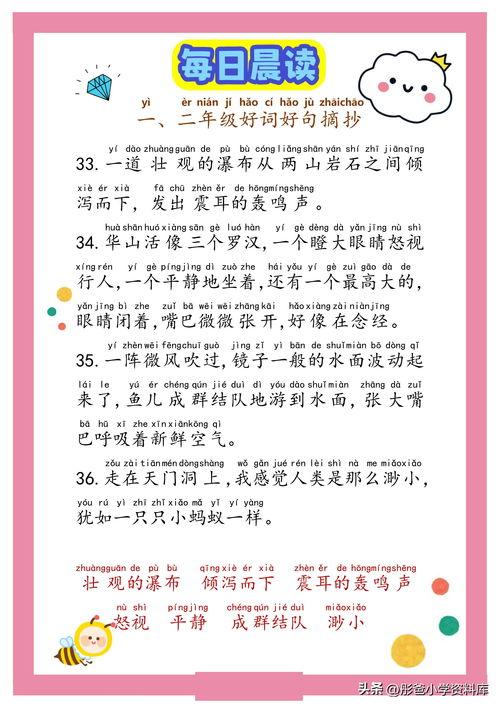 每日晨读
yì èr nián jí hǎo cí hǎo jù zhāichāo
一、二年级好词好句摘抄
yí dào zhuàngguān de pù bù cóng liǎng shān yán shí zhī jiān qīng
33.一道壮观的瀑布从两山岩石之间倾
xiè ér xià fā chū zhèn ěr de hōngmíngshēng
泻而下,发出震耳的轰鸣声。
huà shān huó xiàng sān gè luó hàn yí gè dèng dà yǎn jīng nù shì
34.华山活像三个罗汉,一个瞪大眼睛怒视
xíng rén yí gè píngjìng dì zuò zhe hái yǒu yí gè zuì gāo dà de
行人,一个平静地坐着,还有一个最高大的,
yǎn jīng bì zhe zuǐ bā wēi wēi zhāng kāi hǎo xiàng zài niàn jīng
眼睛闭着,嘴巴微微张开,好像在念经。
yí zhèn wēi fēng chuī guò jìng zǐ yì bān de shuǐ miàn bō dòng qǐ
35.一阵微风吹过,镜子一般的水面波动起
lái le yú ér chéng qún jié duì dì yóu dào shuǐ miàn zhāng dà zuǐ
来了,鱼儿成群结队地游到水面,张大嘴
bā hū xī zhe xīn xiān kōng qì
巴呼吸着新鲜空气。
zǒu zài tiān mén dòng shàng wǒ gǎn jué rén lèi shì nà me miǎo xiǎo
36.走在天门洞上,我感觉人类是那么渺小,
yóu rú yì zhī zhī xiǎo mǎ yǐ yí yàng
犹如一只只小蚂蚁一样。
zhuàngguān de pù bù qīng xiè ér xià zhèn ěr de hōngmíngshēng
壮观的瀑布 倾泻而下 震耳的轰鸣声
nù shì píngjìng chéng qún jié duì miǎoxiǎo
怒视 平静 成群结队 渺小
头条 @彤爸小学资料库